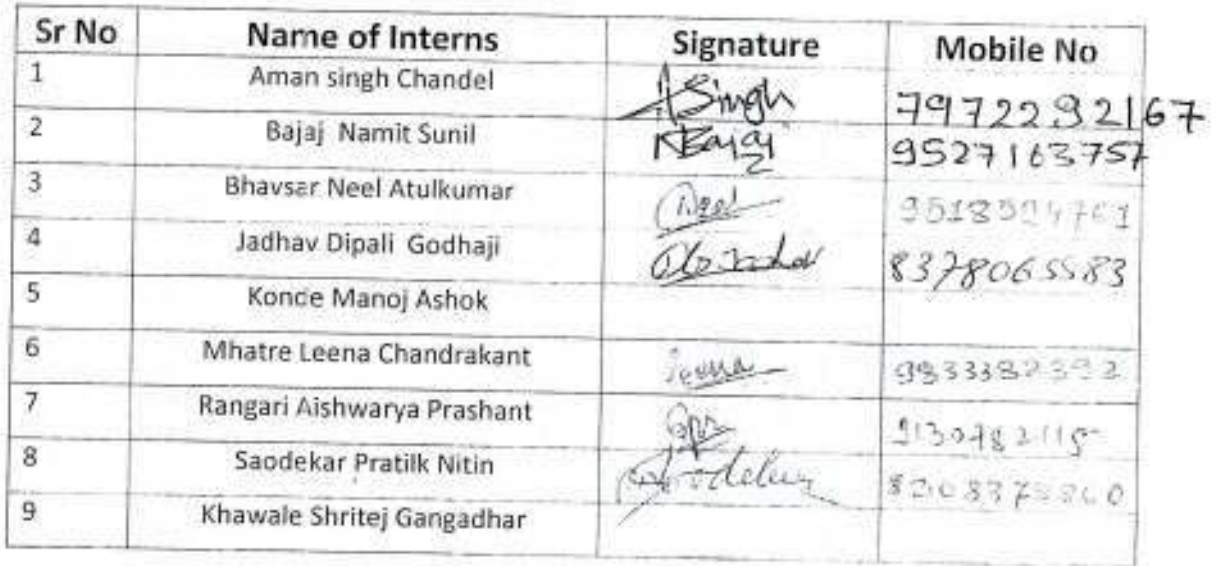 Sr No Name of Interns Signature Mobile No
1 Aman singh Chandel ASingh 7972292167
2 Bajaj Namit Sunil NBajaj 9527163757
3 Bhavsar Neel Atulkumar Neel
4 Jadhav Dipali Godhaji 8378065583
5 Konde Manoj Ashok
6 Mhatre Leena Chandrakant Leena 9833382392
7 Rangari Aishwarya Prashant
8 Saodekar Pratilk Nitin Saodekar
9 Khawale Shritej Gangadhar